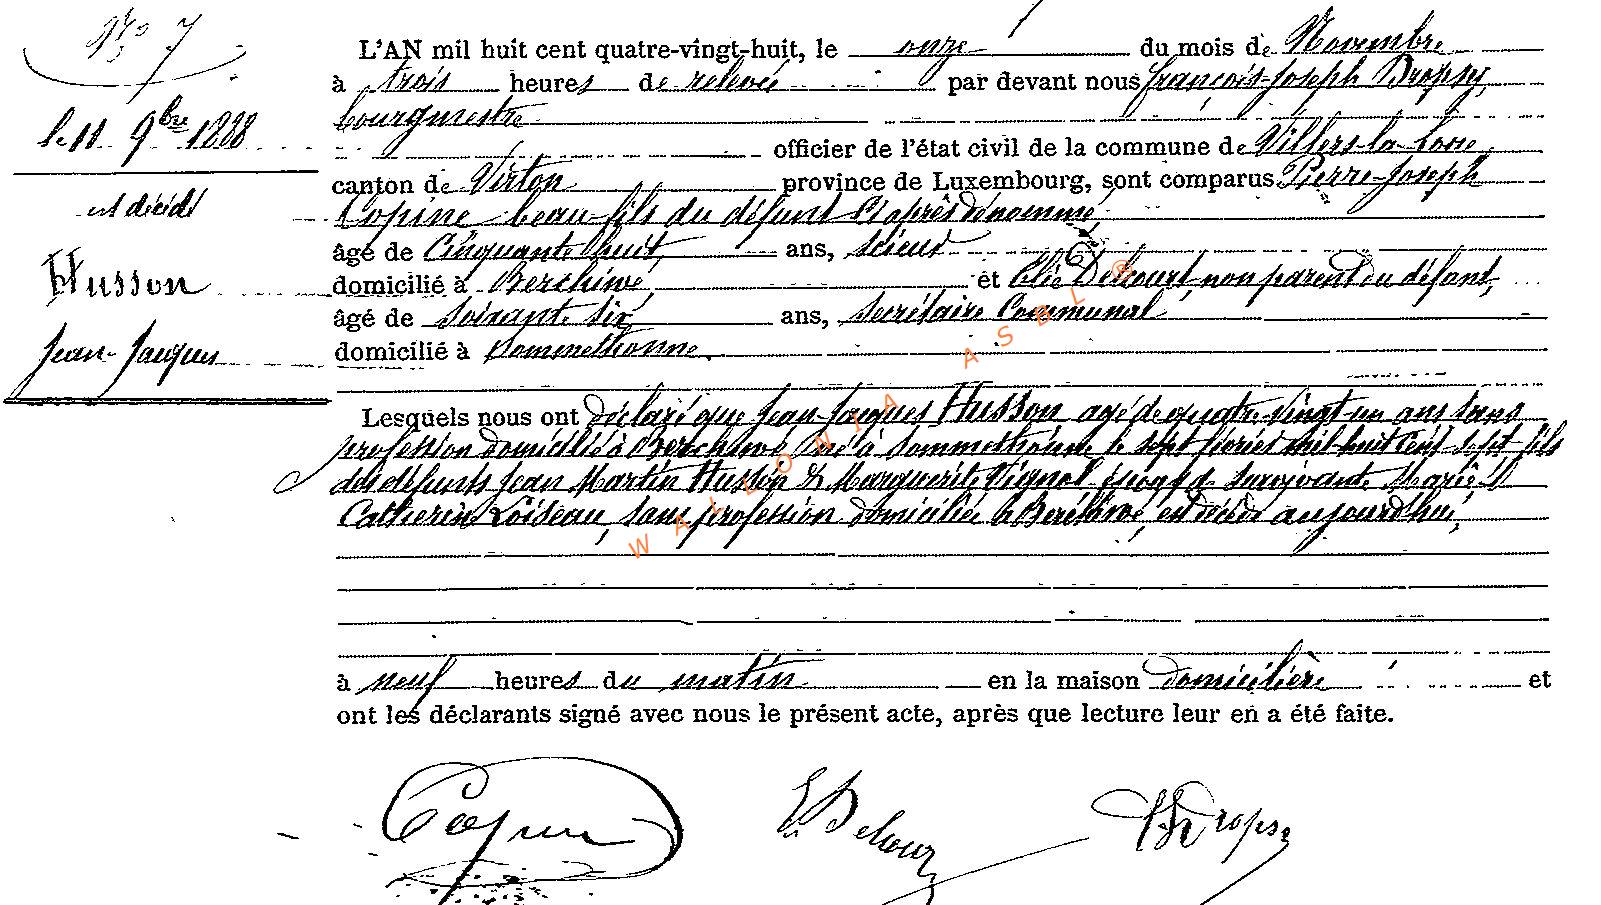 No 7
le 11 9bre 1888
est décédé
Husson
Jean-Jacques
L'AN mil huit cent quatre-vingt-huit, le onze du mois de Novembre
à trois heures de relevée par devant nous françois-Joseph Dropsy,
bourgmestre
officier de l'état civil de la commune de Villers-la-Loue,
canton de Virton province de Luxembourg, sont comparus Pierre-Joseph
Copine beau-fils du défunt ci après dénommé,
âgé de Cinquante huit ans, scieur
domicilié à Berchiwé, et Elie Delcourt, non parent du défunt,
âgé de soixante six ans, secrétaire Communal
domicilié à Sommethonne.
Lesquels nous ont déclaré que Jean-Jacques Husson agé de quatre vingt un ans sans
profession domicilié à Berchiwé né à Sommethonne le sept février mil huit cent sept, fils
des défunts Jean Martin Husson & Marguerite Vignol, survivante Marie
Catherine Loiseau, sans profession domiciliée à Berchiwé, est décédé aujourd'hui,
à neuf heures du matin en la maison domicilière et
ont les déclarants signé avec nous le présent acte, après que lecture leur en a été faite.
Copine E Delcour Dropsy
WALLONIA ASBL ®